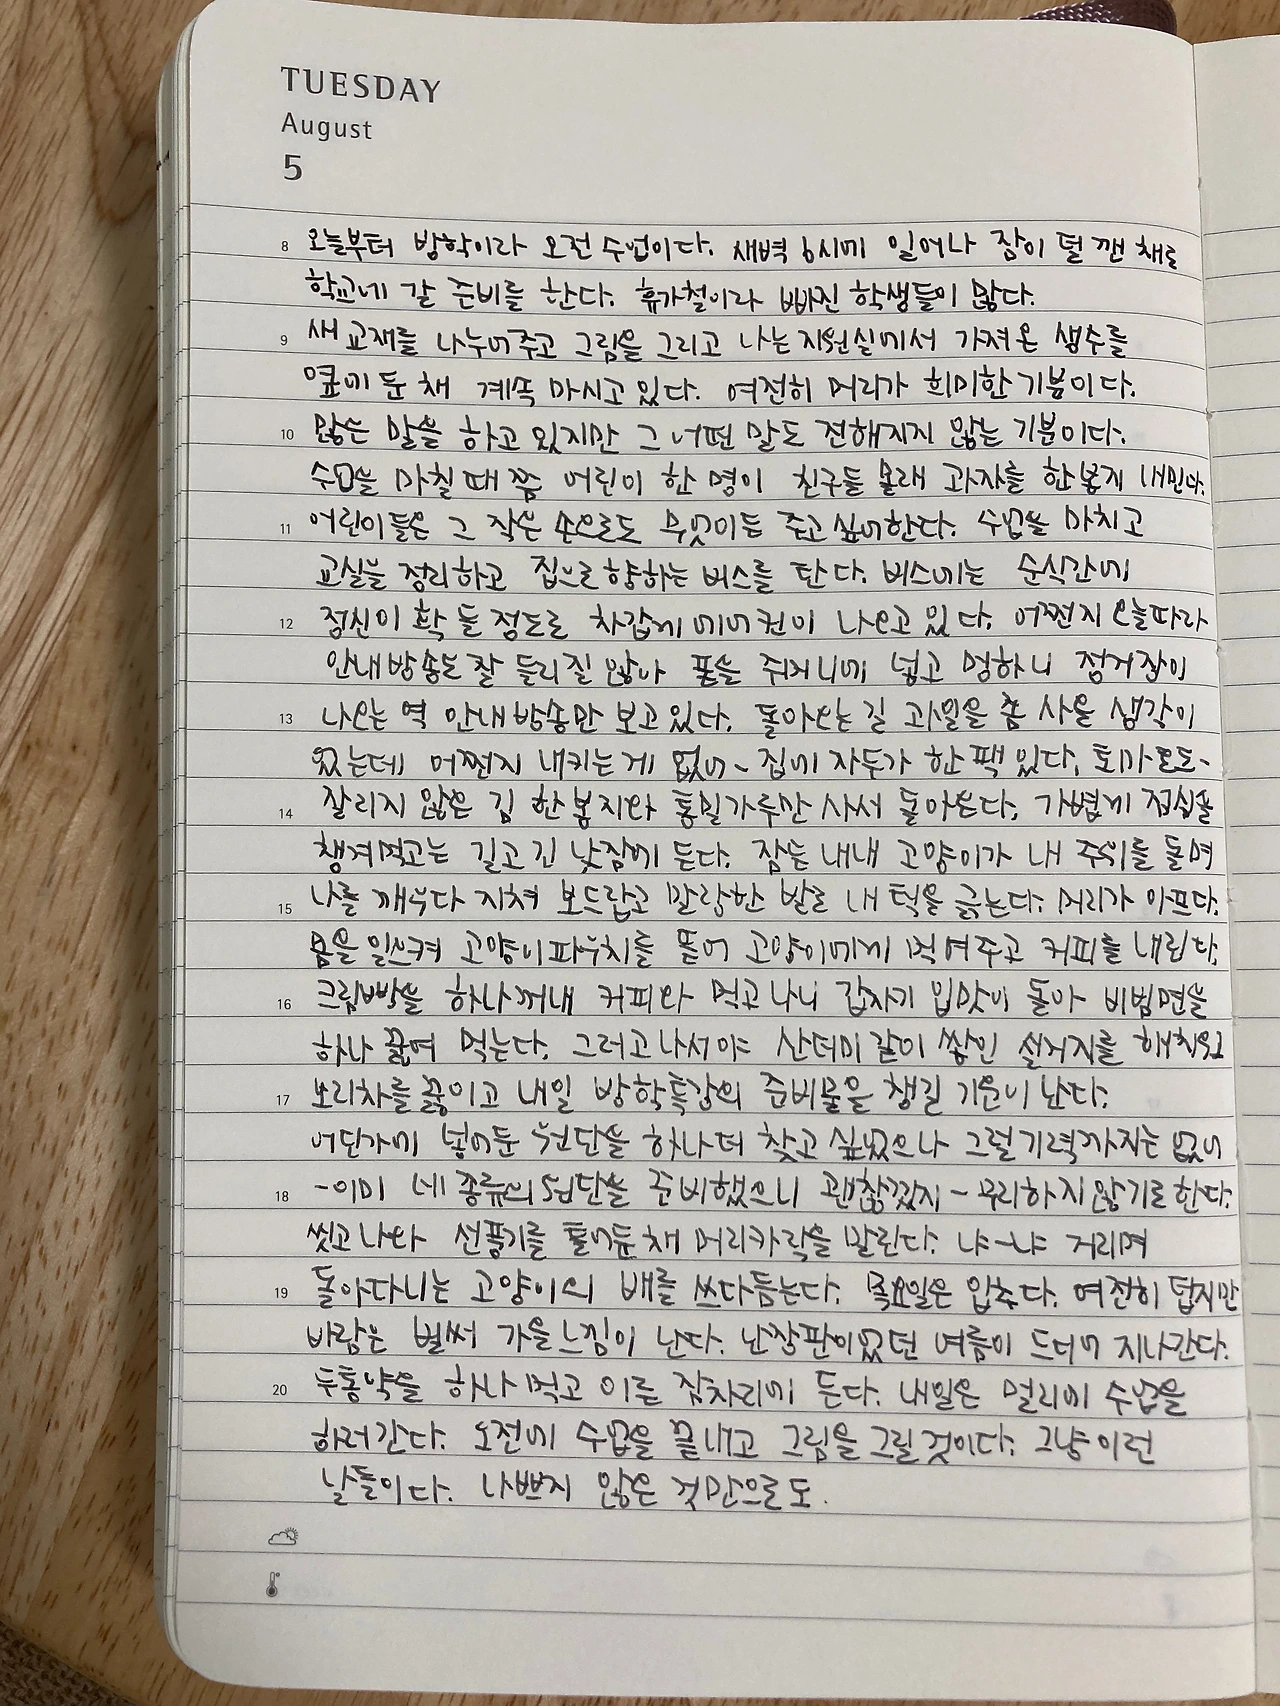 TUESDAY
August
5
8 오늘부터 방학이라 오전 수업이다. 새벽 6시에 일어나 잠이 덜 깬 채로
학교에 갈 준비를 한다. 휴가철이라 빠진 학생들이 많다.
9 새 교재를 나누어주고 그림을 그리고 나는 지원실에서 가져온 생수를
옆에 둔 채 계속 마시고 있다. 여전히 머리가 희미한 기분이다.
10 많은 말을 하고 있지만 그 어떤 말도 전해지지 않는 기분이다.
수업을 마칠 때 쯤 어린이 한 명이 친구들 몰래 과자를 한 봉지 내민다.
11 어린이들은 그 작은 손으로도 무엇이든 주고 싶어한다. 수업을 마치고
교실을 정리하고 집으로 향하는 버스를 탄다. 버스에는 순식간에
12 정신이 확 들 정도로 차갑게 에어컨이 나오고 있다. 어쩐지 오늘따라
안내방송도 잘 들리질 않아 폰을 주머니에 넣고 멍하니 정거장이
13 나오는 역 안내방송만 보고 있다. 돌아오는 길 과일을 좀 사올 생각이
있는데 어쩐지 내키는 게 없어 ~ 집에 자두가 한 팩 있다. 토마토도 -
14 잘리지 않은 김 한 봉지와 통밀가루만 사서 돌아온다. 가볍게 점심을
챙겨먹고는 길고 긴 낮잠에 든다. 잠든 내내 고양이가 내 주위를 돌며
15 나를 깨우다 지쳐 보드랍고 말랑한 발로 내 턱을 긁는다. 머리가 아프다.
몸을 일으켜 고양이파우치를 뜯어 고양이에게 먹여주고 커피를 내린다.
16 크림빵을 하나 꺼내 커피와 먹고 나니 갑자기 입맛이 돌아 비빔면을
하나 끓여 먹는다. 그러고 나서야 산더미같이 쌓인 설거지를 해치우고
17 보리차를 끓이고 내일 방학특강의 준비물을 챙길 기운이 난다.
어딘가에 넣어둔 원단을 하나 더 찾고 싶었으나 그럴 기력까지는 없어
18 - 이미 네 종류의 원단을 준비했으니 괜찮겠지 - 무리하지 않기로 한다.
씻고 나와 선풍기를 틀어둔 채 머리카락을 말린다. 냐-냐 거리며
19 돌아다니는 고양이의 배를 쓰다듬는다. 목요일은 입추다. 여전히 덥지만
바람은 벌써 가을 느낌이 난다. 난장판이었던 여름이 드디어 지나간다.
20 두통약을 하나 먹고 이른 잠자리에 든다. 내일은 멀리에 수업을
하러 간다. 오전에 수업을 끝내고 그림을 그릴 것이다. 그냥 이런
날들이다. 나쁘지 않은 것만으로도.